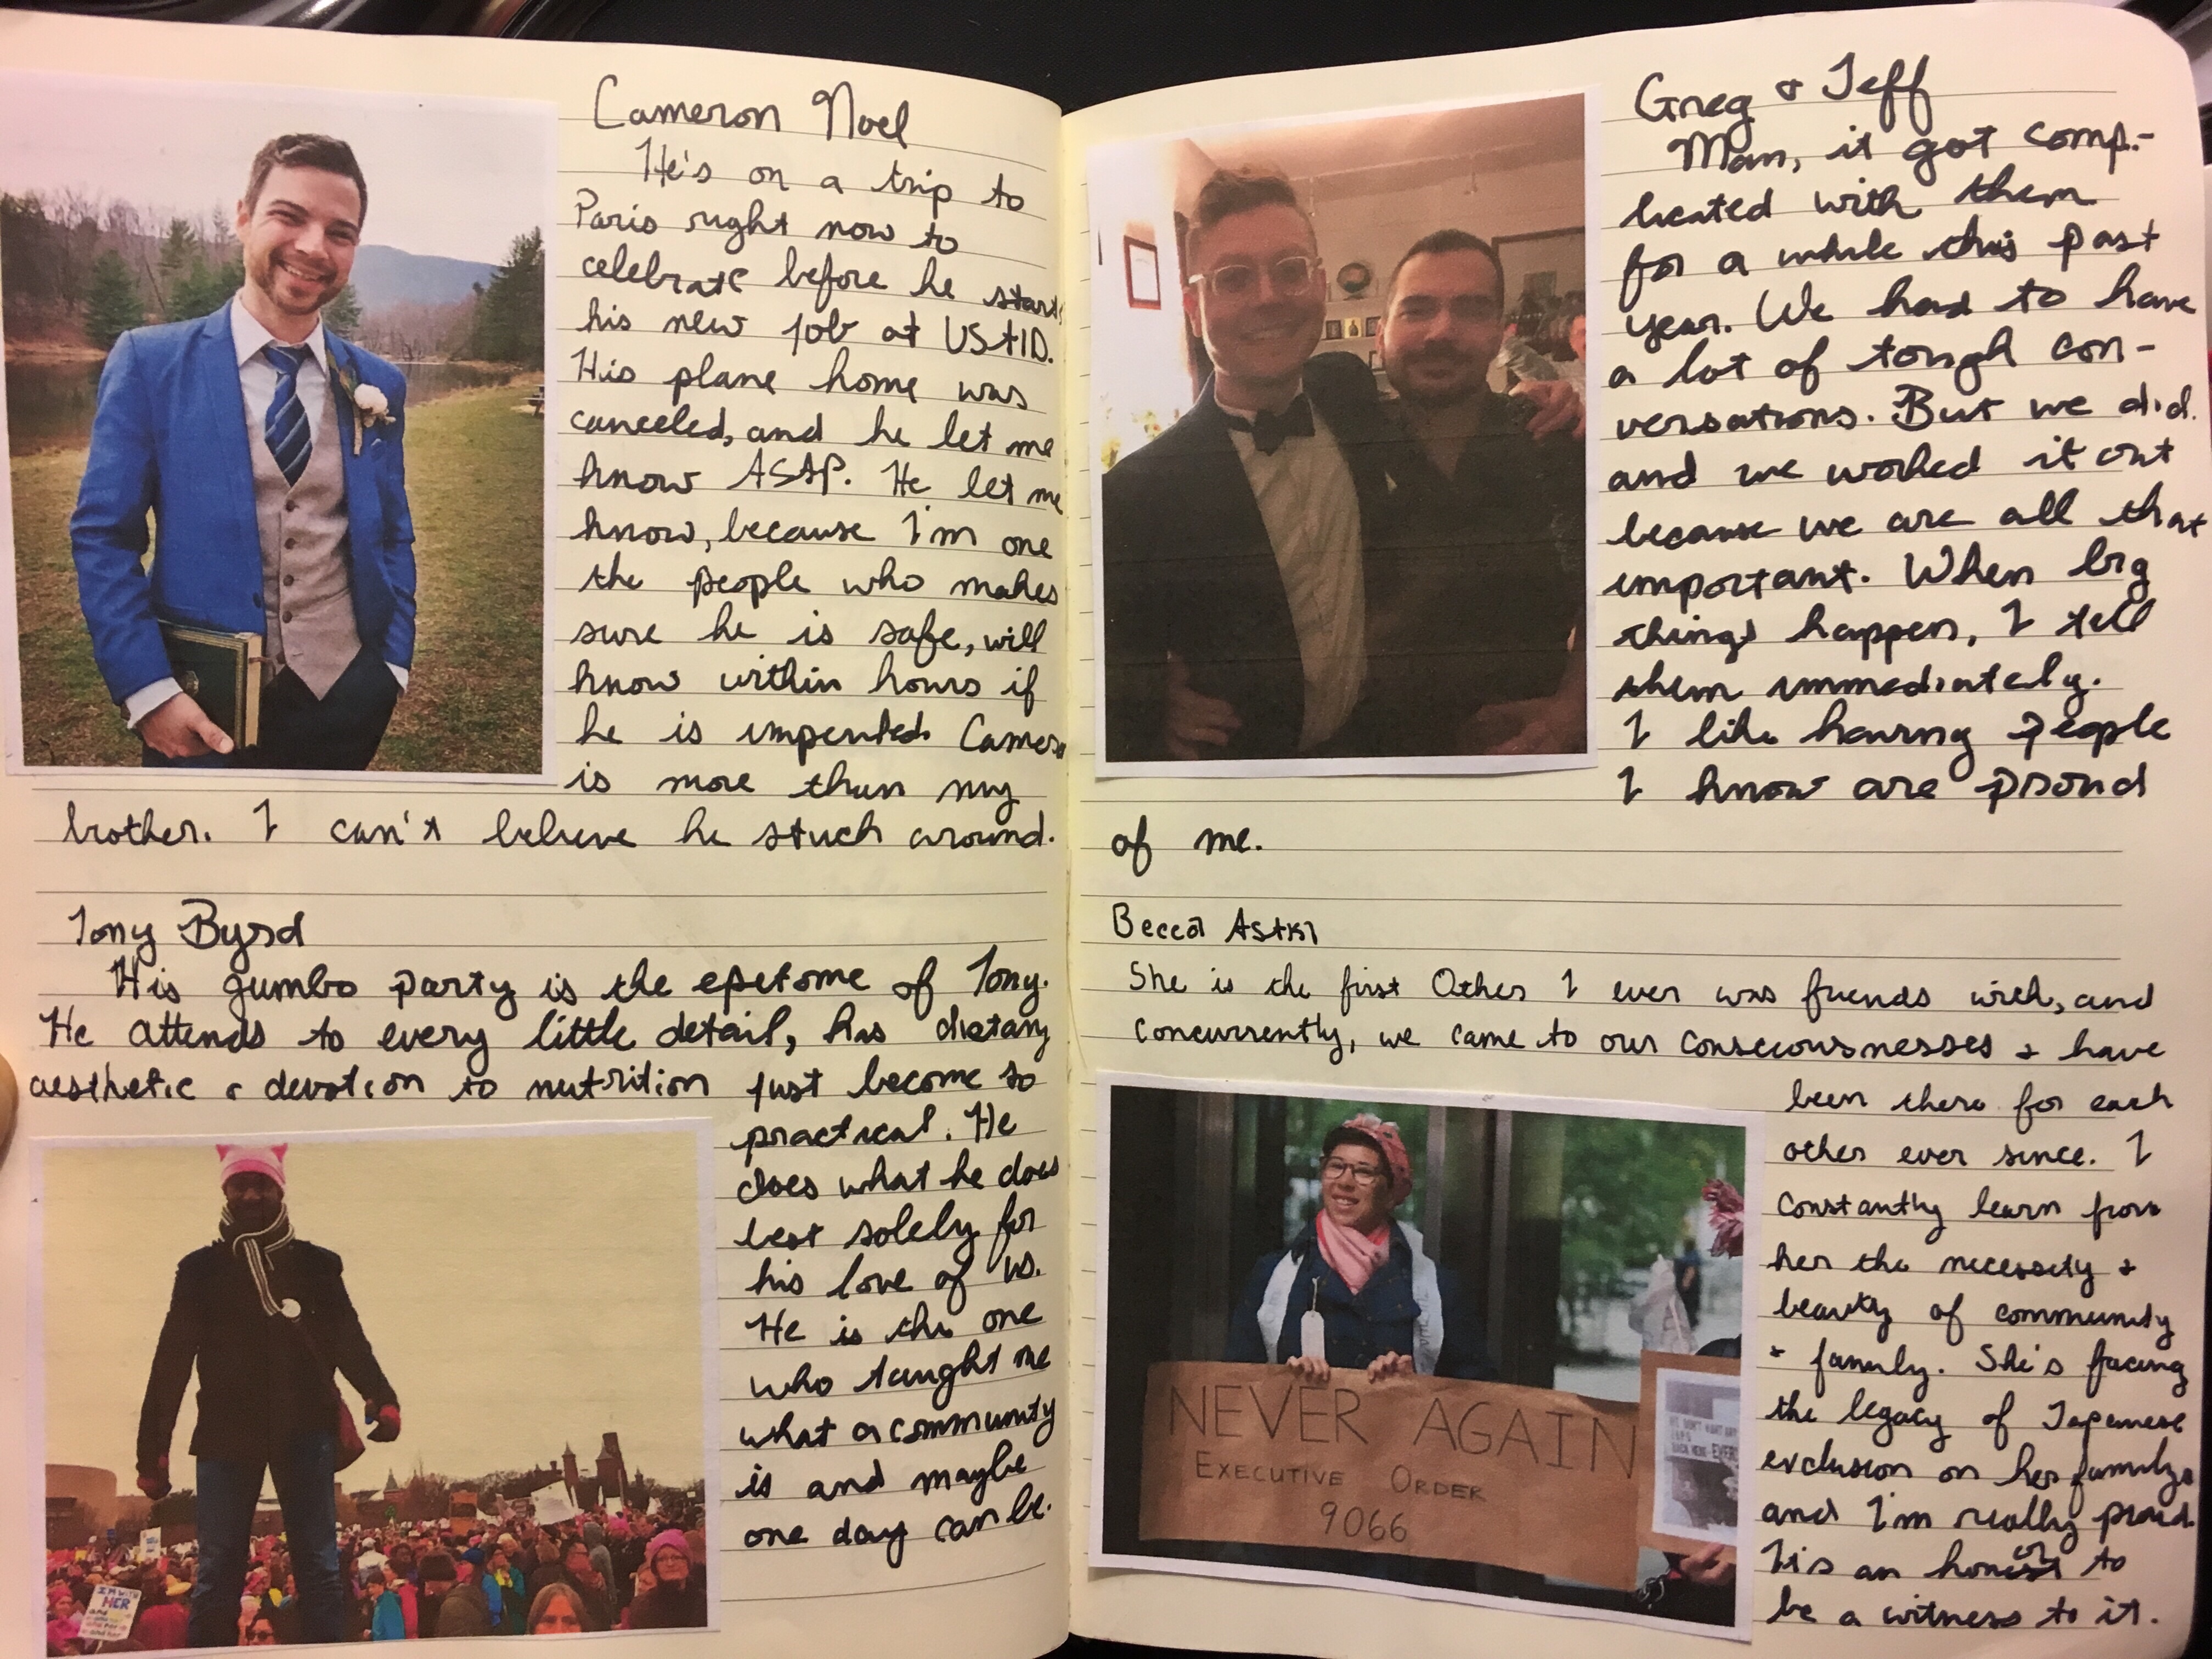 Cameron Noel
He's on a trip to
Paris right now to
celebrate before he starts
his new job at USAID.
His plane home was
canceled, and he let me
know ASAP. He let me
know, because I'm one
the people who makes
sure he is safe, will
know within hours if
he is imperiled. Cameron
is more than my
brother. I can't believe he stuck around.
Tony Byrd
His gumbo party is the epitome of Tony.
He attends to every little detail, has dietary
aesthetic & devotion to nutrition just become so
practical. He
does what he does
best solely for
his love of us.
He is the one
who taught me
what a community
is and maybe
one day can be.
I'M WITH
HER
and
Greg & Jeff
Man, it got comp-
licated with them
for a while this past
year. We had to have
a lot of tough con-
versations. But we did.
and we worked it out
because we are all that
important. When big
things happen, I tell
them immediately.
I like having people
I know are proud
of me.
Becca Astki
She is the first Other I ever was friends with, and
concurrently, we came to our consciousnesses & have
been there for each
other ever since. I
constantly learn from
her the necessity &
beauty of community
& family. She's facing
the legacy of Japanese
exclusion on her family
and I'm really proud.
It's an honor to
be a witness to it.
NEVER AGAIN
EXECUTIVE ORDER
9066